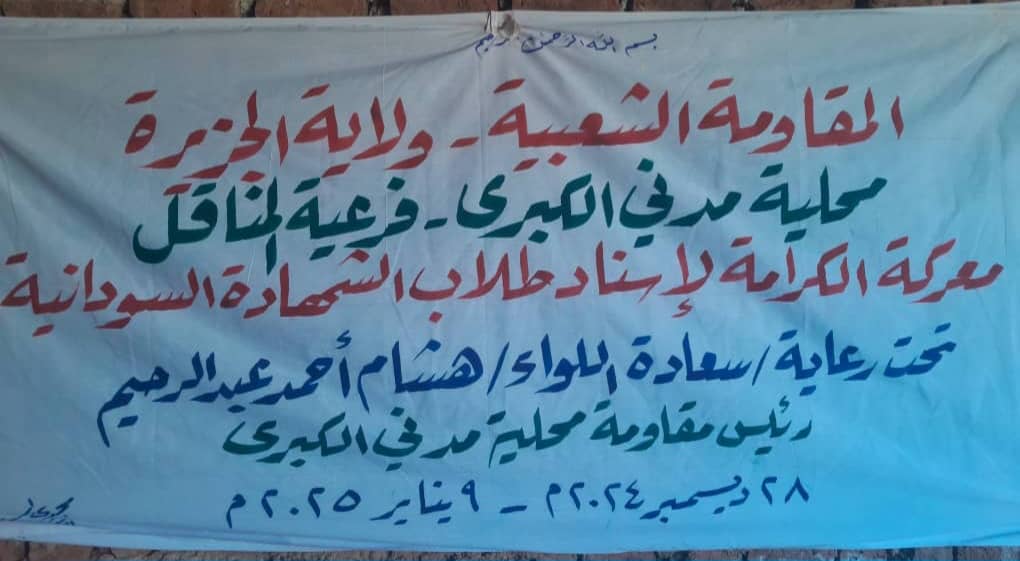 بسم الله الرحمن الرحيم
المقاومة الشعبية - ولاية الجزيرة
محلية مدني الكبرى - فرعية المناقل
معركة الكرامة لإسناد طلاب الشهادة السودانية
تحت رعاية / سعادة اللواء / هشام أحمد عبد الرحيم
رئيس مقاومة محلية مدني الكبرى
٢٨ ديسمبر ٢٠٢٤م - ٩ يناير ٢٠٢٥م